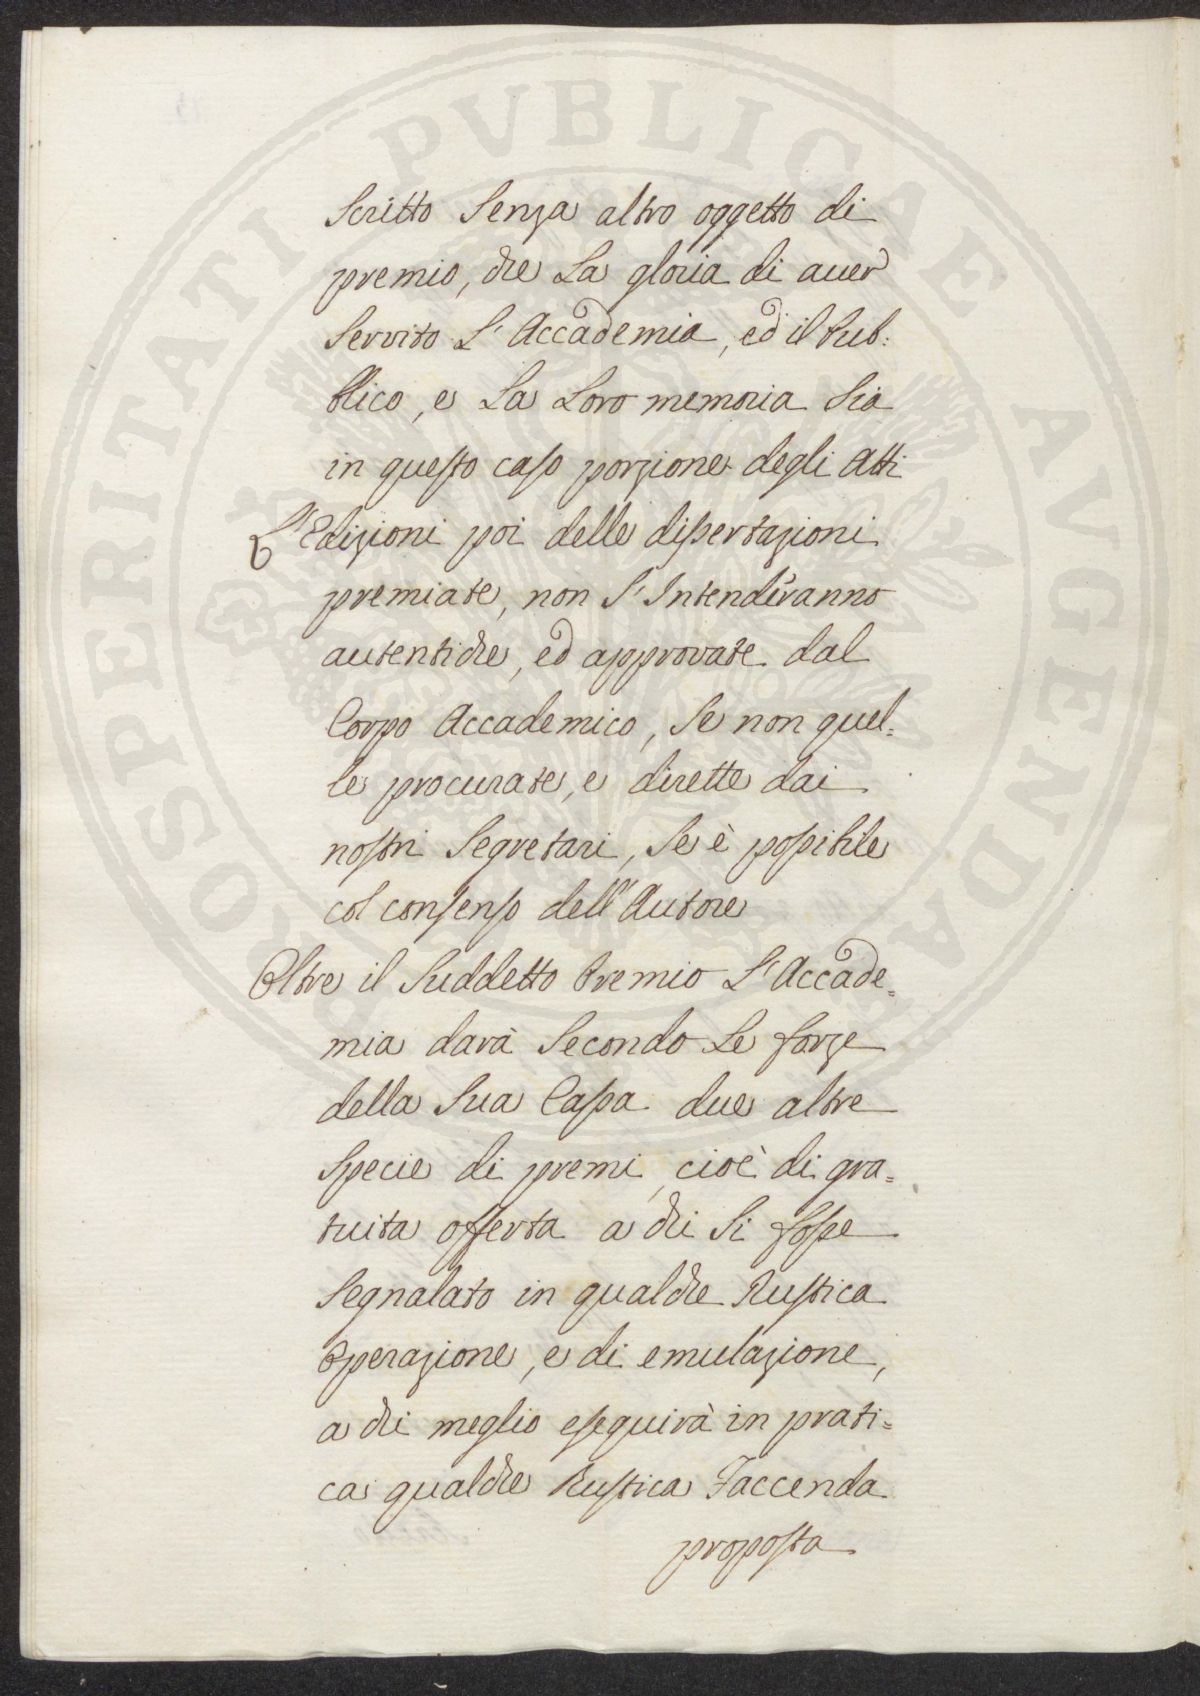 PROSPERITATI PVBLICAE AVGENDAE
Scritto Senza altro oggetto di
premio, che La gloria di aver
Servito L'Accademia, ed il Pub:
blico, e La Loro memoria Sia
in questo caso porzione degli Atti
L'Edizioni poi delle dissertazioni
premiate, non S'Intenderanno
autentiche, ed approvate dal
Corpo Accademico, Se non quel=
le procurate, e dirette dai
nostri Segretari, Se è possibile
col consenso dell'Autore
Oltre il Suddetto Premio L'Accade=
mia darà Secondo Le forze
della Sua Cassa due altre
Specie di premi, cioè di gra=
tuita offerta a chi Si fosse
Segnalato in qualche Rustica
Operazione, e di emulazione,
a chi meglio eseguirà in prati=
ca qualche Rustica Faccenda
proposta